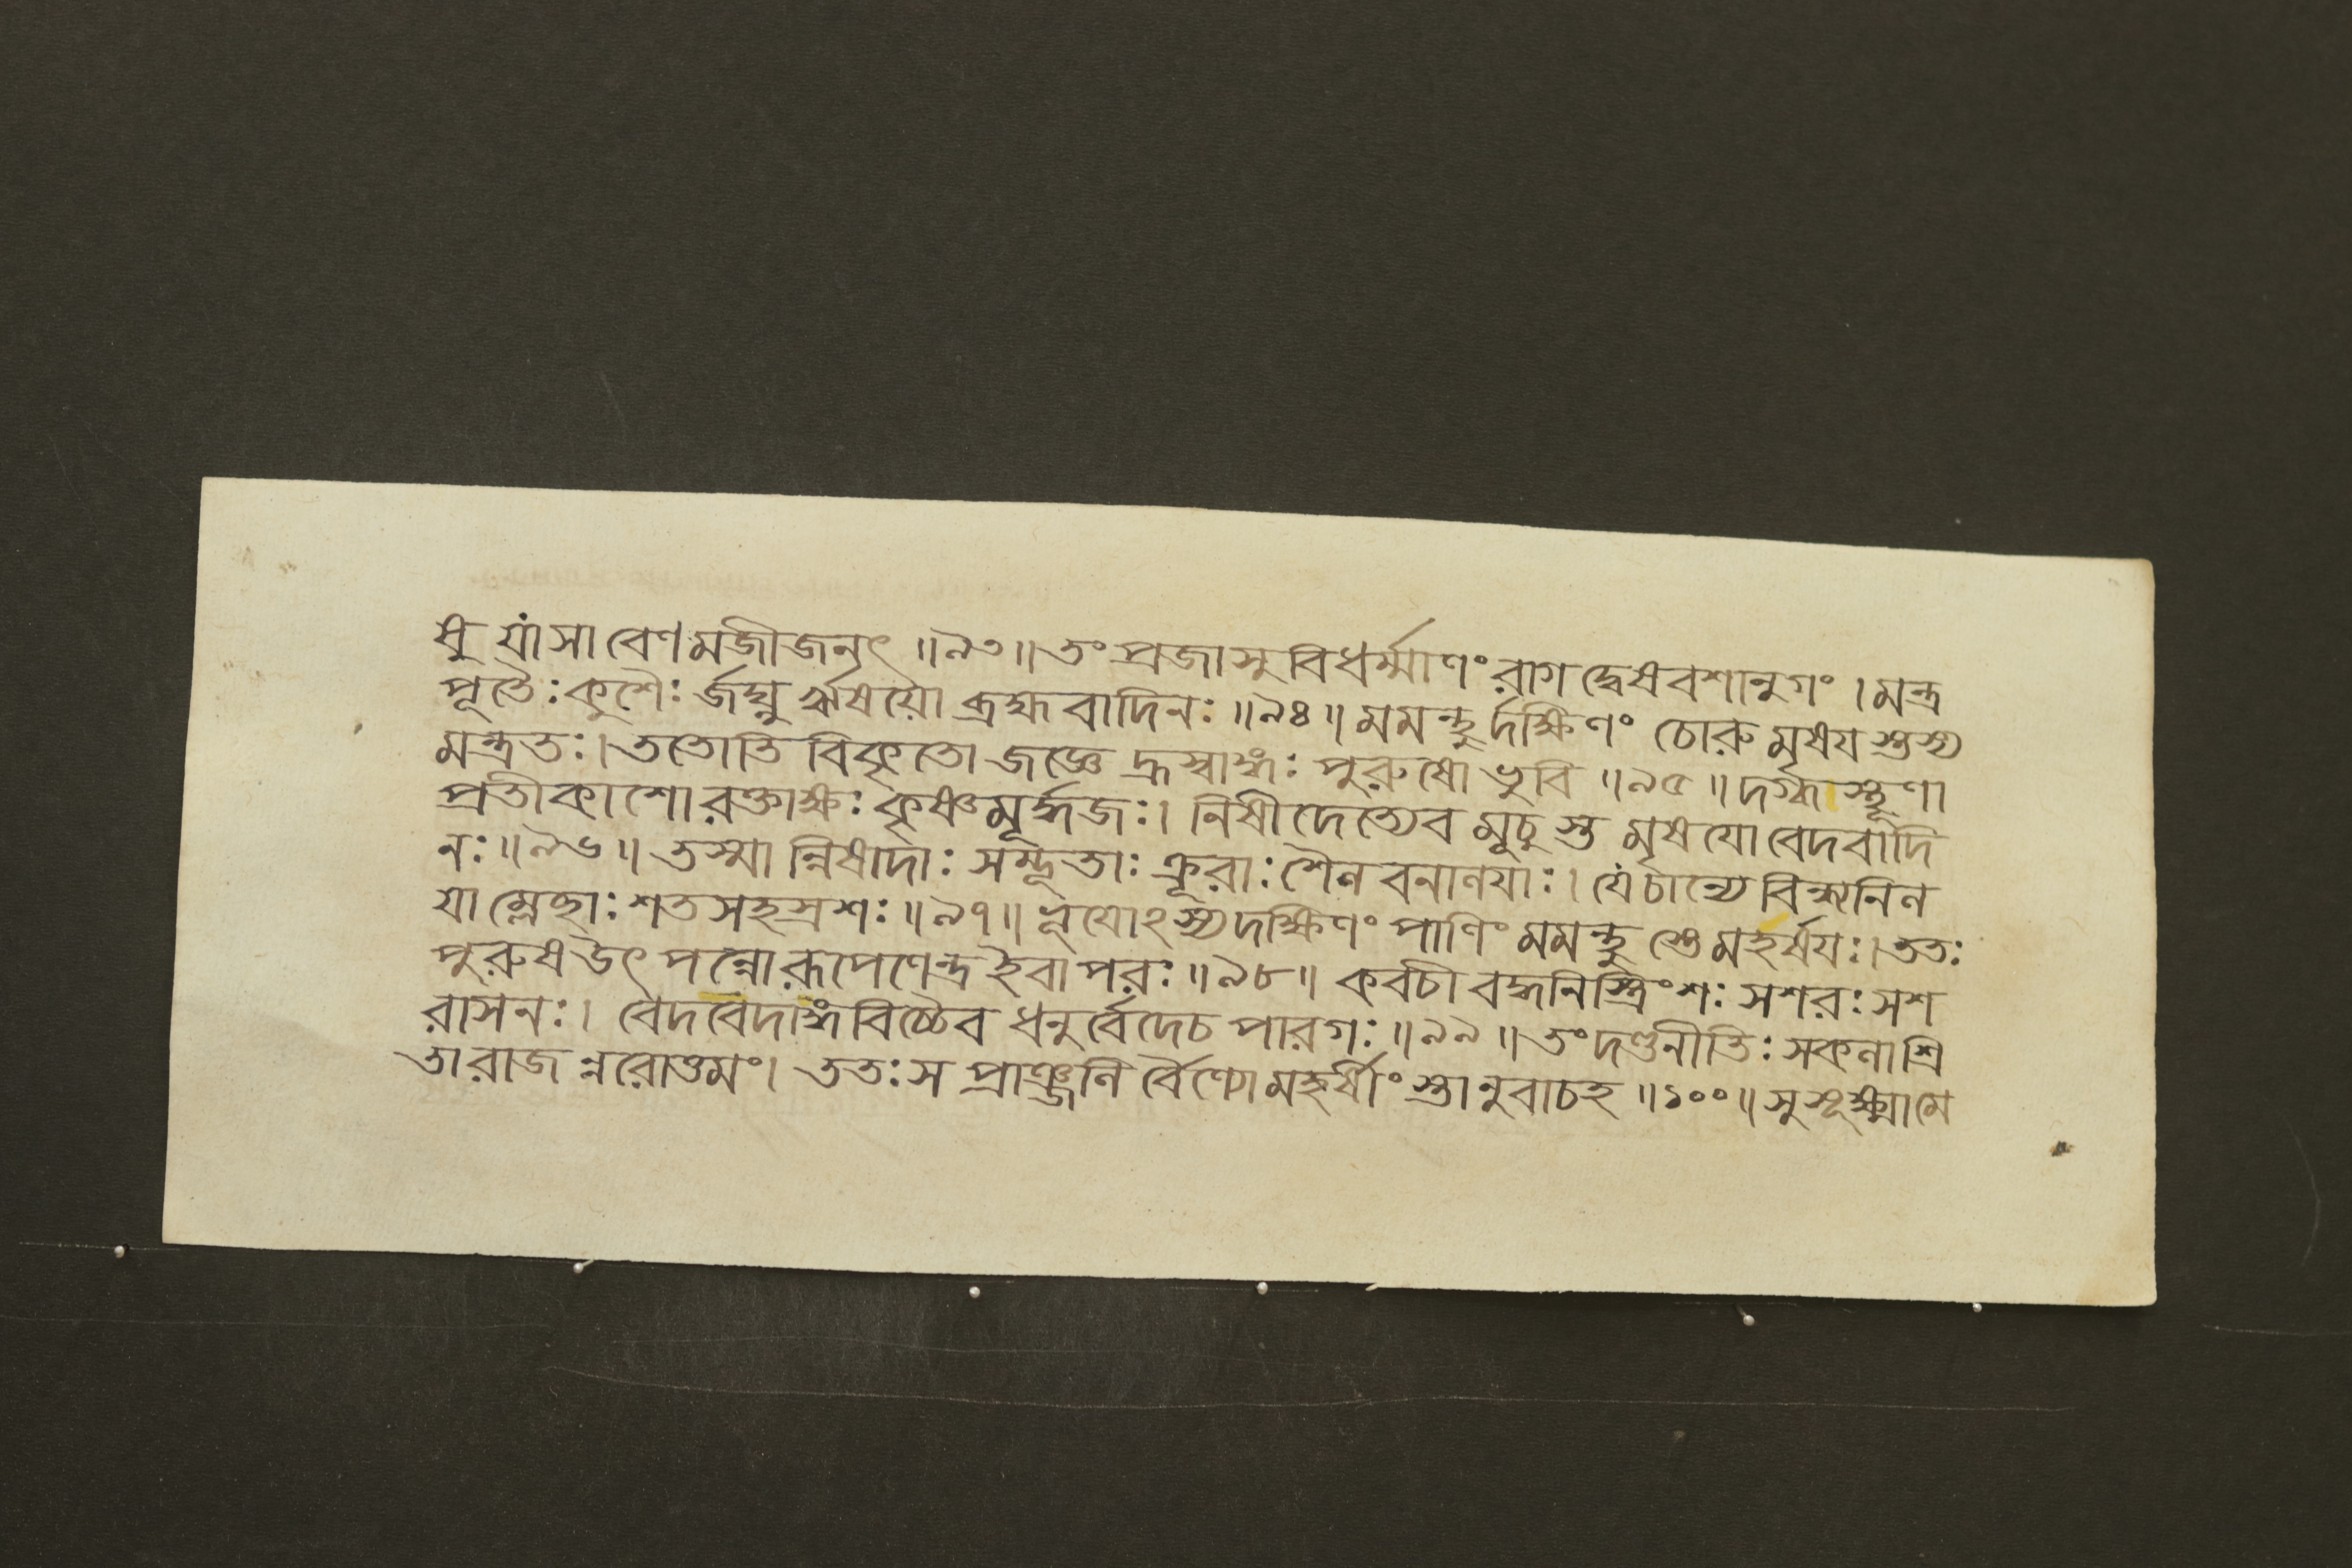 ষু যাংসা বেণমজীজনৎ ॥৯৩॥ তং প্রজাসু বিধর্ম্মাণং রাগ দ্বেষবশানুগং । মন্ত্র
পূতৈঃ কুশৈঃ র্জঘ্নু র্ঋষয়ো ব্রহ্মবাদিনঃ ॥৯৪॥ মমন্থুর্দক্ষিণং চোরু মৃষয স্তস্য
মন্ত্রতঃ । ততোতি বিকৃতো জজ্ঞে হ্রস্বাঙ্গঃ পুরুষো ভুবি ॥৯৫॥ দগ্ধাস্থূণা
প্রতীকাশো রক্তাক্ষঃ কৃষ্ণমূর্দ্ধজঃ । নিষীদেত্যেব মূচু স্ত মৃষযো বেদবাদি
নঃ ॥৯৬॥ তস্মা ন্নিষাদাঃ সম্ভূতাঃ ক্রূরাঃ শৈল বনালযাঃ । যে চান্যে বিন্ধ্যনিল
যা ম্লেচ্ছাঃ শতসহস্রশঃ ॥৯৭॥ ভূযোঽস্যদক্ষিণং পাণিং মমন্থু স্তে মহর্ষযঃ । ততঃ
পুরুষ উৎ পন্নো রূপেণেন্দ্র ইবা পরঃ ॥৯৮॥ কবচী বদ্ধনিস্ত্রিংশঃ সশরঃ সশ
রাসনঃ । বেদবেদাঙ্গবিচ্চৈব ধনুর্বেদেচ পারগঃ ॥৯৯॥ তং দণ্ডনীতিঃ সকলাশ্রি
তা রাজ ন্নরোত্তমং । ততঃ স প্রাঞ্জলি র্বৈণ্যো মহর্ষীং স্তানুবাচহ ॥১০০॥ সুসূক্ষ্মামে